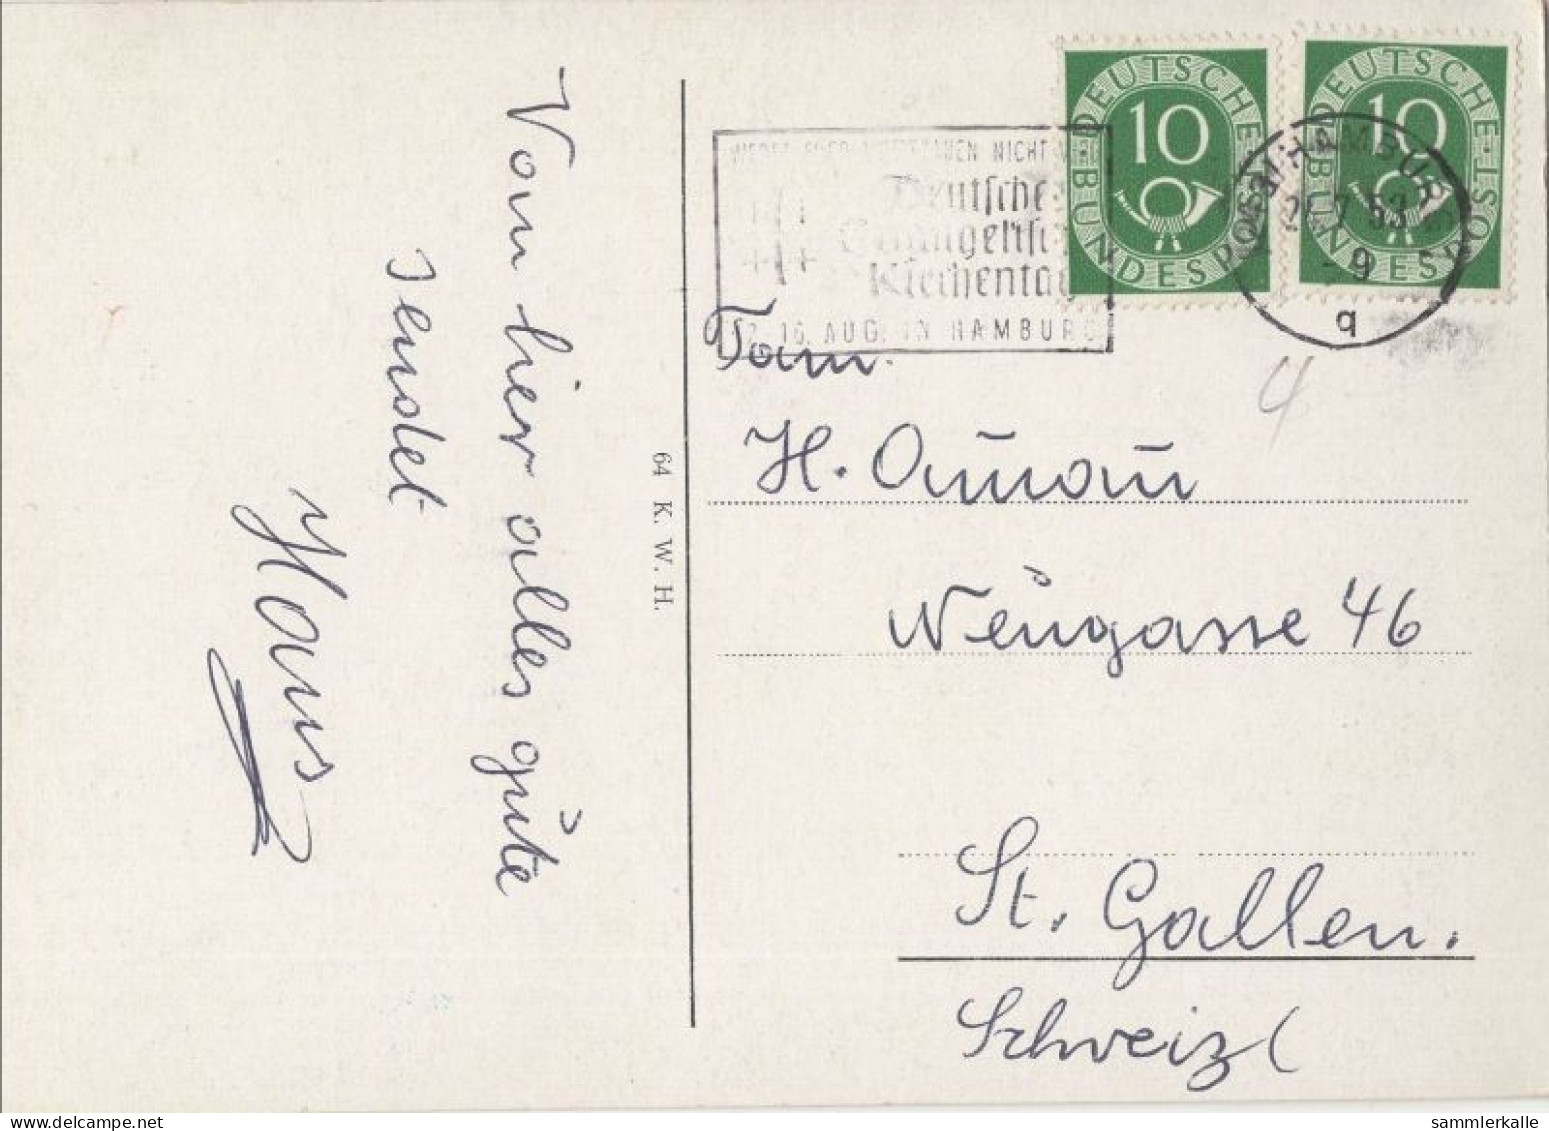 Von hier alles gute
sendet
Hans
64 K. W. H.
DEUTSCHE BUNDESPOST
10
DEUTSCHE BUNDESPOST
10
WERFT EUER VERTRAUEN NICHT WEG
Deutscher
Evangelischer
Kirchentag
12.-16. AUG. IN HAMBURG
HAMBURG
7.53
- 9
q
4
Fam.
H. Aumann
Neugasse 46
St. Gallen.
Schweiz
sammlerkalle